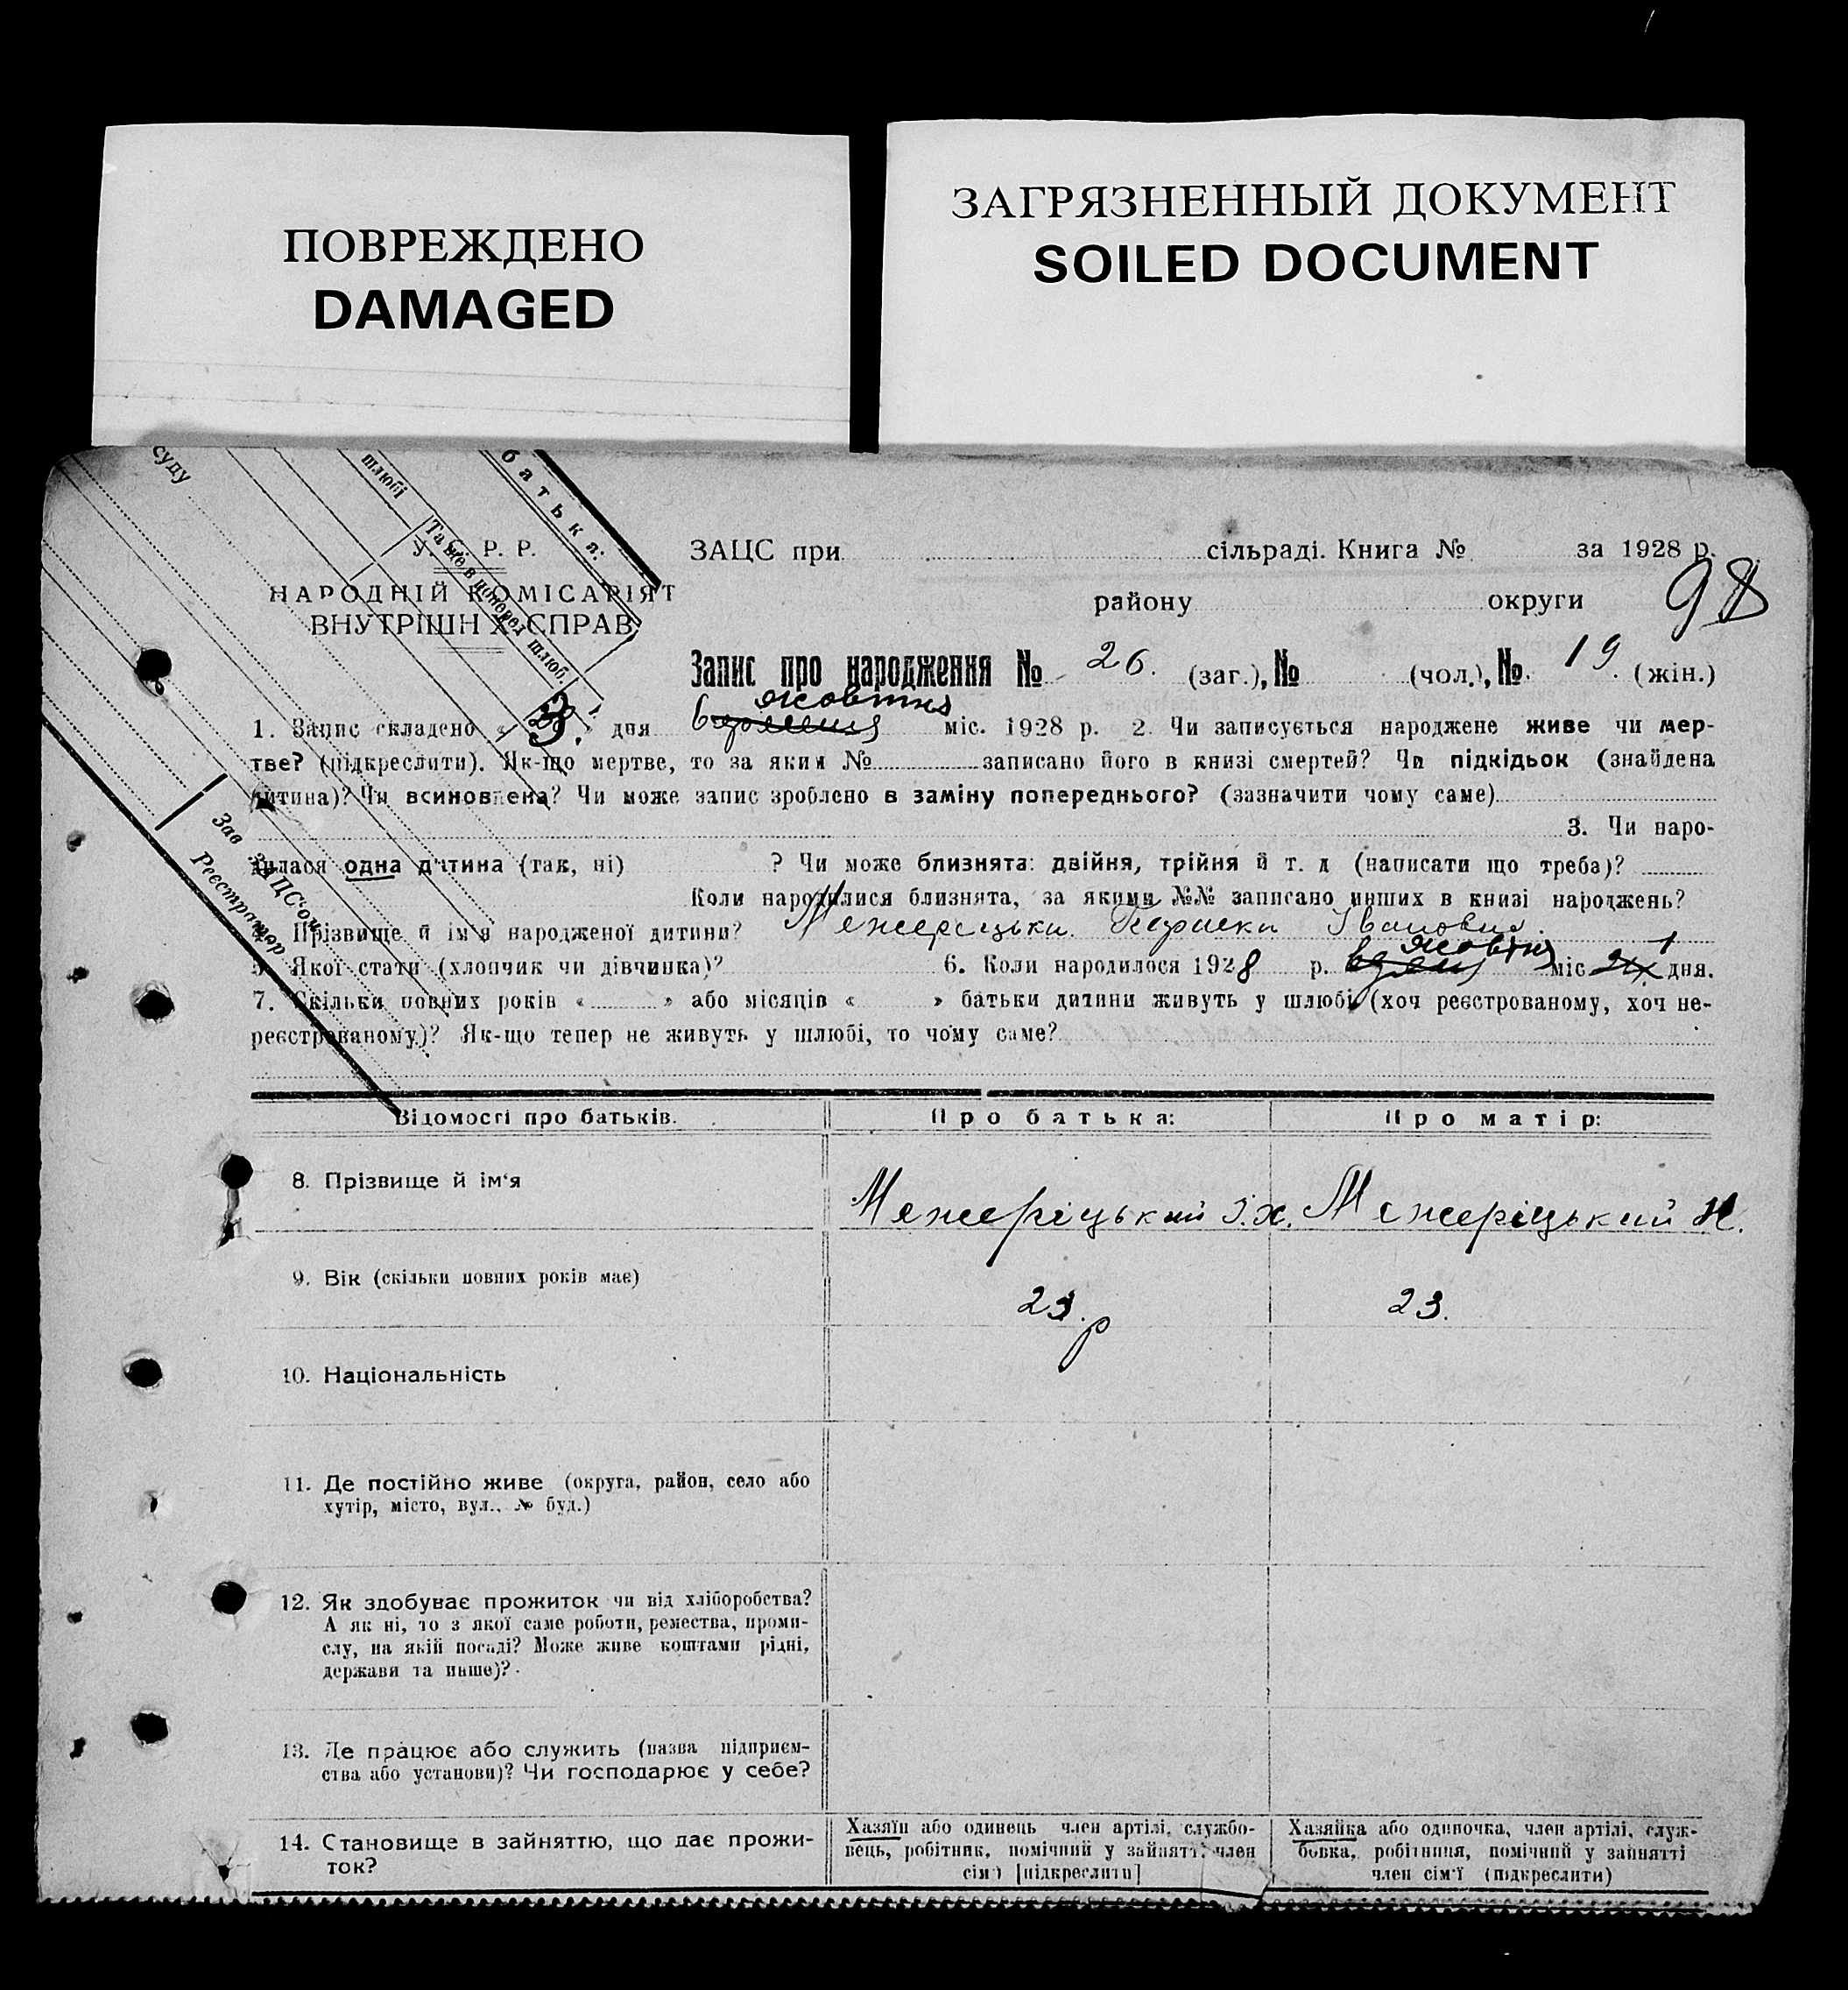 ПОВРЕЖДЕНО
DAMAGED
ЗАГРЯЗНЕННЫЙ ДОКУМЕНТ
SOILED DOCUMENT
суду
шлюбі
батька:
Та ще в поперед шлюб.
Зав. ЗАЦС'ом
Реєстратор
У. С. Р. Р.
НАРОДНІЙ КОМІСАРІЯТ
ВНУТРІШН Х СПРАВ
ЗАЦС при сільраді. Книга № за 1928 р.
району округи
98
Запис про народження № 26. (заг.), № (чол.), № 19. (жін.)
жовтня
1. Запис складено « 3. » дня міс. 1928 р. 2. Чи записується народжене живе чи мер-
тве? (підкреслити). Як-що мертве, то за яким № записано його в книзі смертей? Чи підкідьок (знайдена
дитина)? Чи всиновлена? Чи може запис зроблено в заміну попереднього? (зазначити чому саме)
3. Чи наро-
дилася одна дитина (так, ні) ? Чи може близнята: двійня, трійня й т. д (написати що треба)?
Коли народилися близнята, за якими №№ записано инших в книзі народжень?
4. Прізвище й ім'я народженої дитини? Межеріцьки Івановна.
жовтня 1
5. Якої стати (хлопчик чи дівчинка)? 6. Коли народилося 1928 р. міс. дня.
7. Скільки повних років « » або місяців « » батьки дитини живуть у шлюбі (хоч реєстрованому, хоч не-
реєстрованому)? Як-що тепер не живуть у шлюбі, то чому саме?
Відомості про батьків. Про батька: Про матір:
8. Прізвище й ім'я Межеріцький І.Х. Межеріцький Н.
9. Вік (скільки повних років має) 23.р 23.
10. Національність
11. Де постійно живе (округа, район, село або
хутір, місто, вул., № буд.)
12. Як здобуває прожиток чи від хліборобства?
А як ні, то з якої саме роботи, ремества, проми-
слу, на якій посаді? Може живе коштами рідні,
держави та инше)?
13. Де працює або служить (назва підприєм-
ства або установи)? Чи господарює у себе?
14. Становище в зайняттю, що дає прожи-
ток?
Хазяїн або одинець член артілі, службо-
вець, робітник, помічний у зайнятт. член
сім'ї [підкреслити]
Хазяйка або одиночка, член артілі, служ-
бовка, робітниця, помічний у зайнятті
член сім'ї (підкреслити)